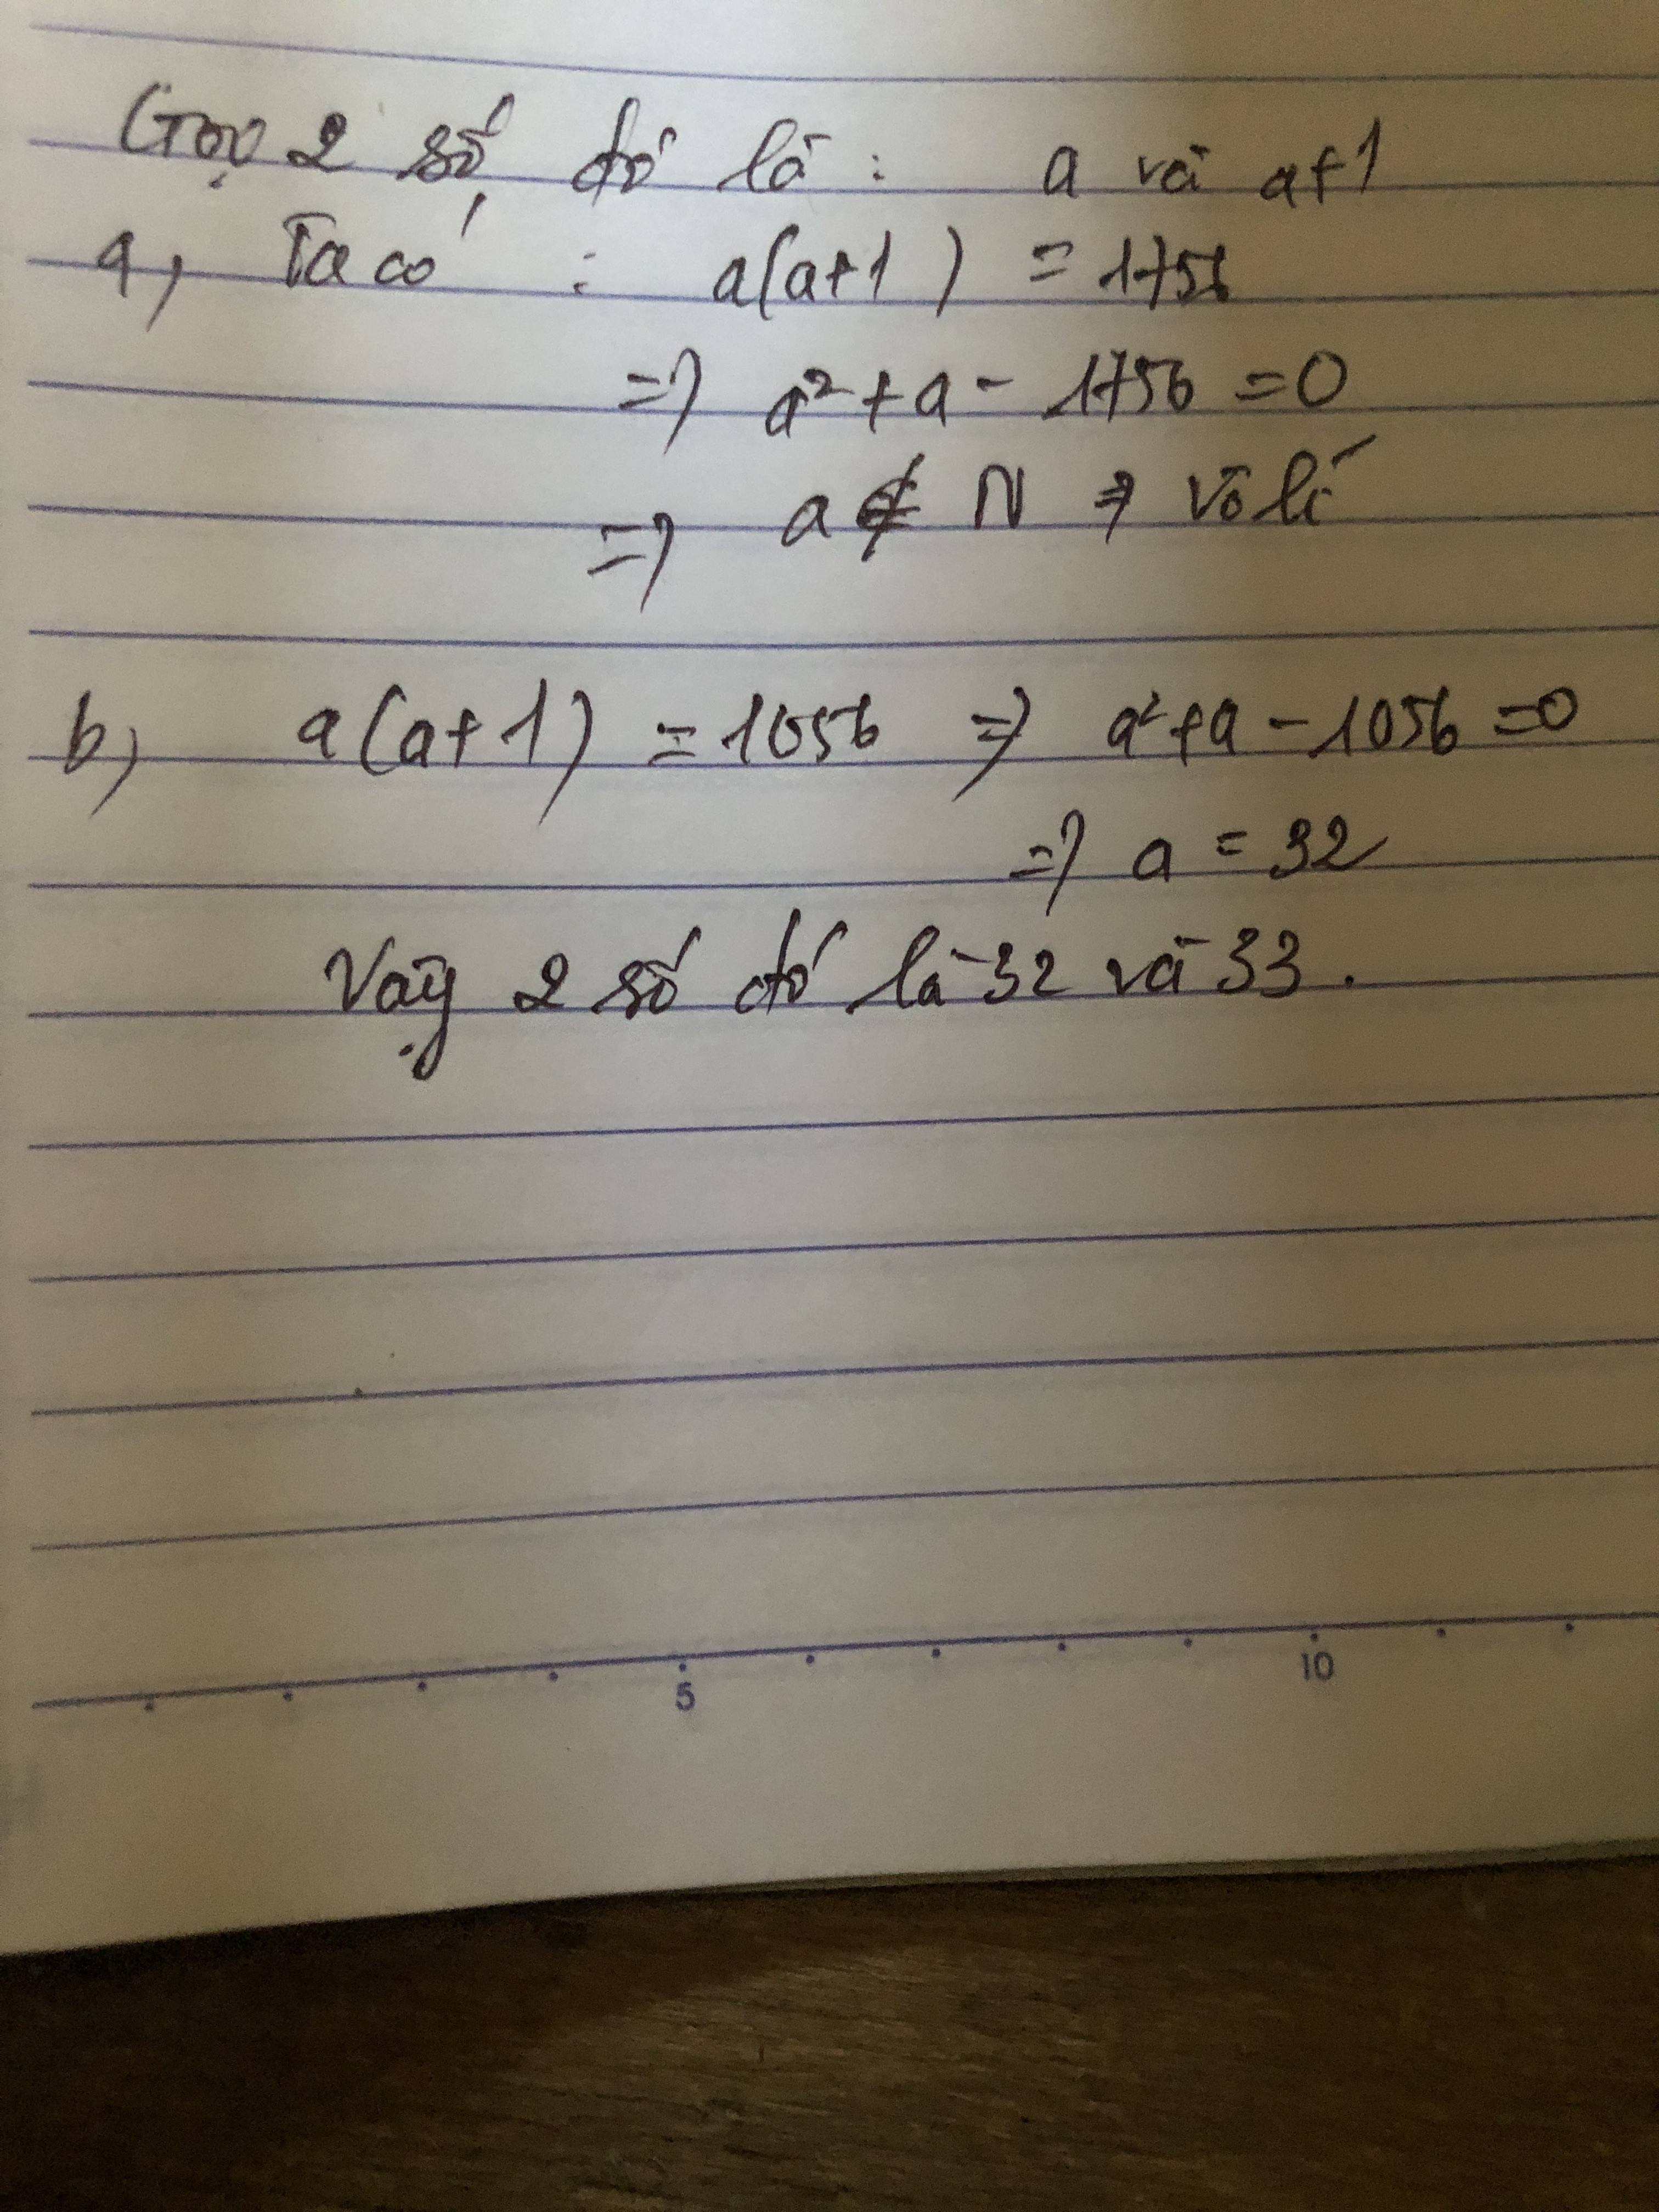 Gọi 2 số đó là : a và a+1
a, Ta có : a(a+1) = 1756
=> a² + a - 1756 = 0
=> a ∉ N => Vô lí
b, a(a+1) = 1056 => a²+a - 1056 = 0
=> a = 32
Vậy 2 số đó là 32 và 33.
5 10